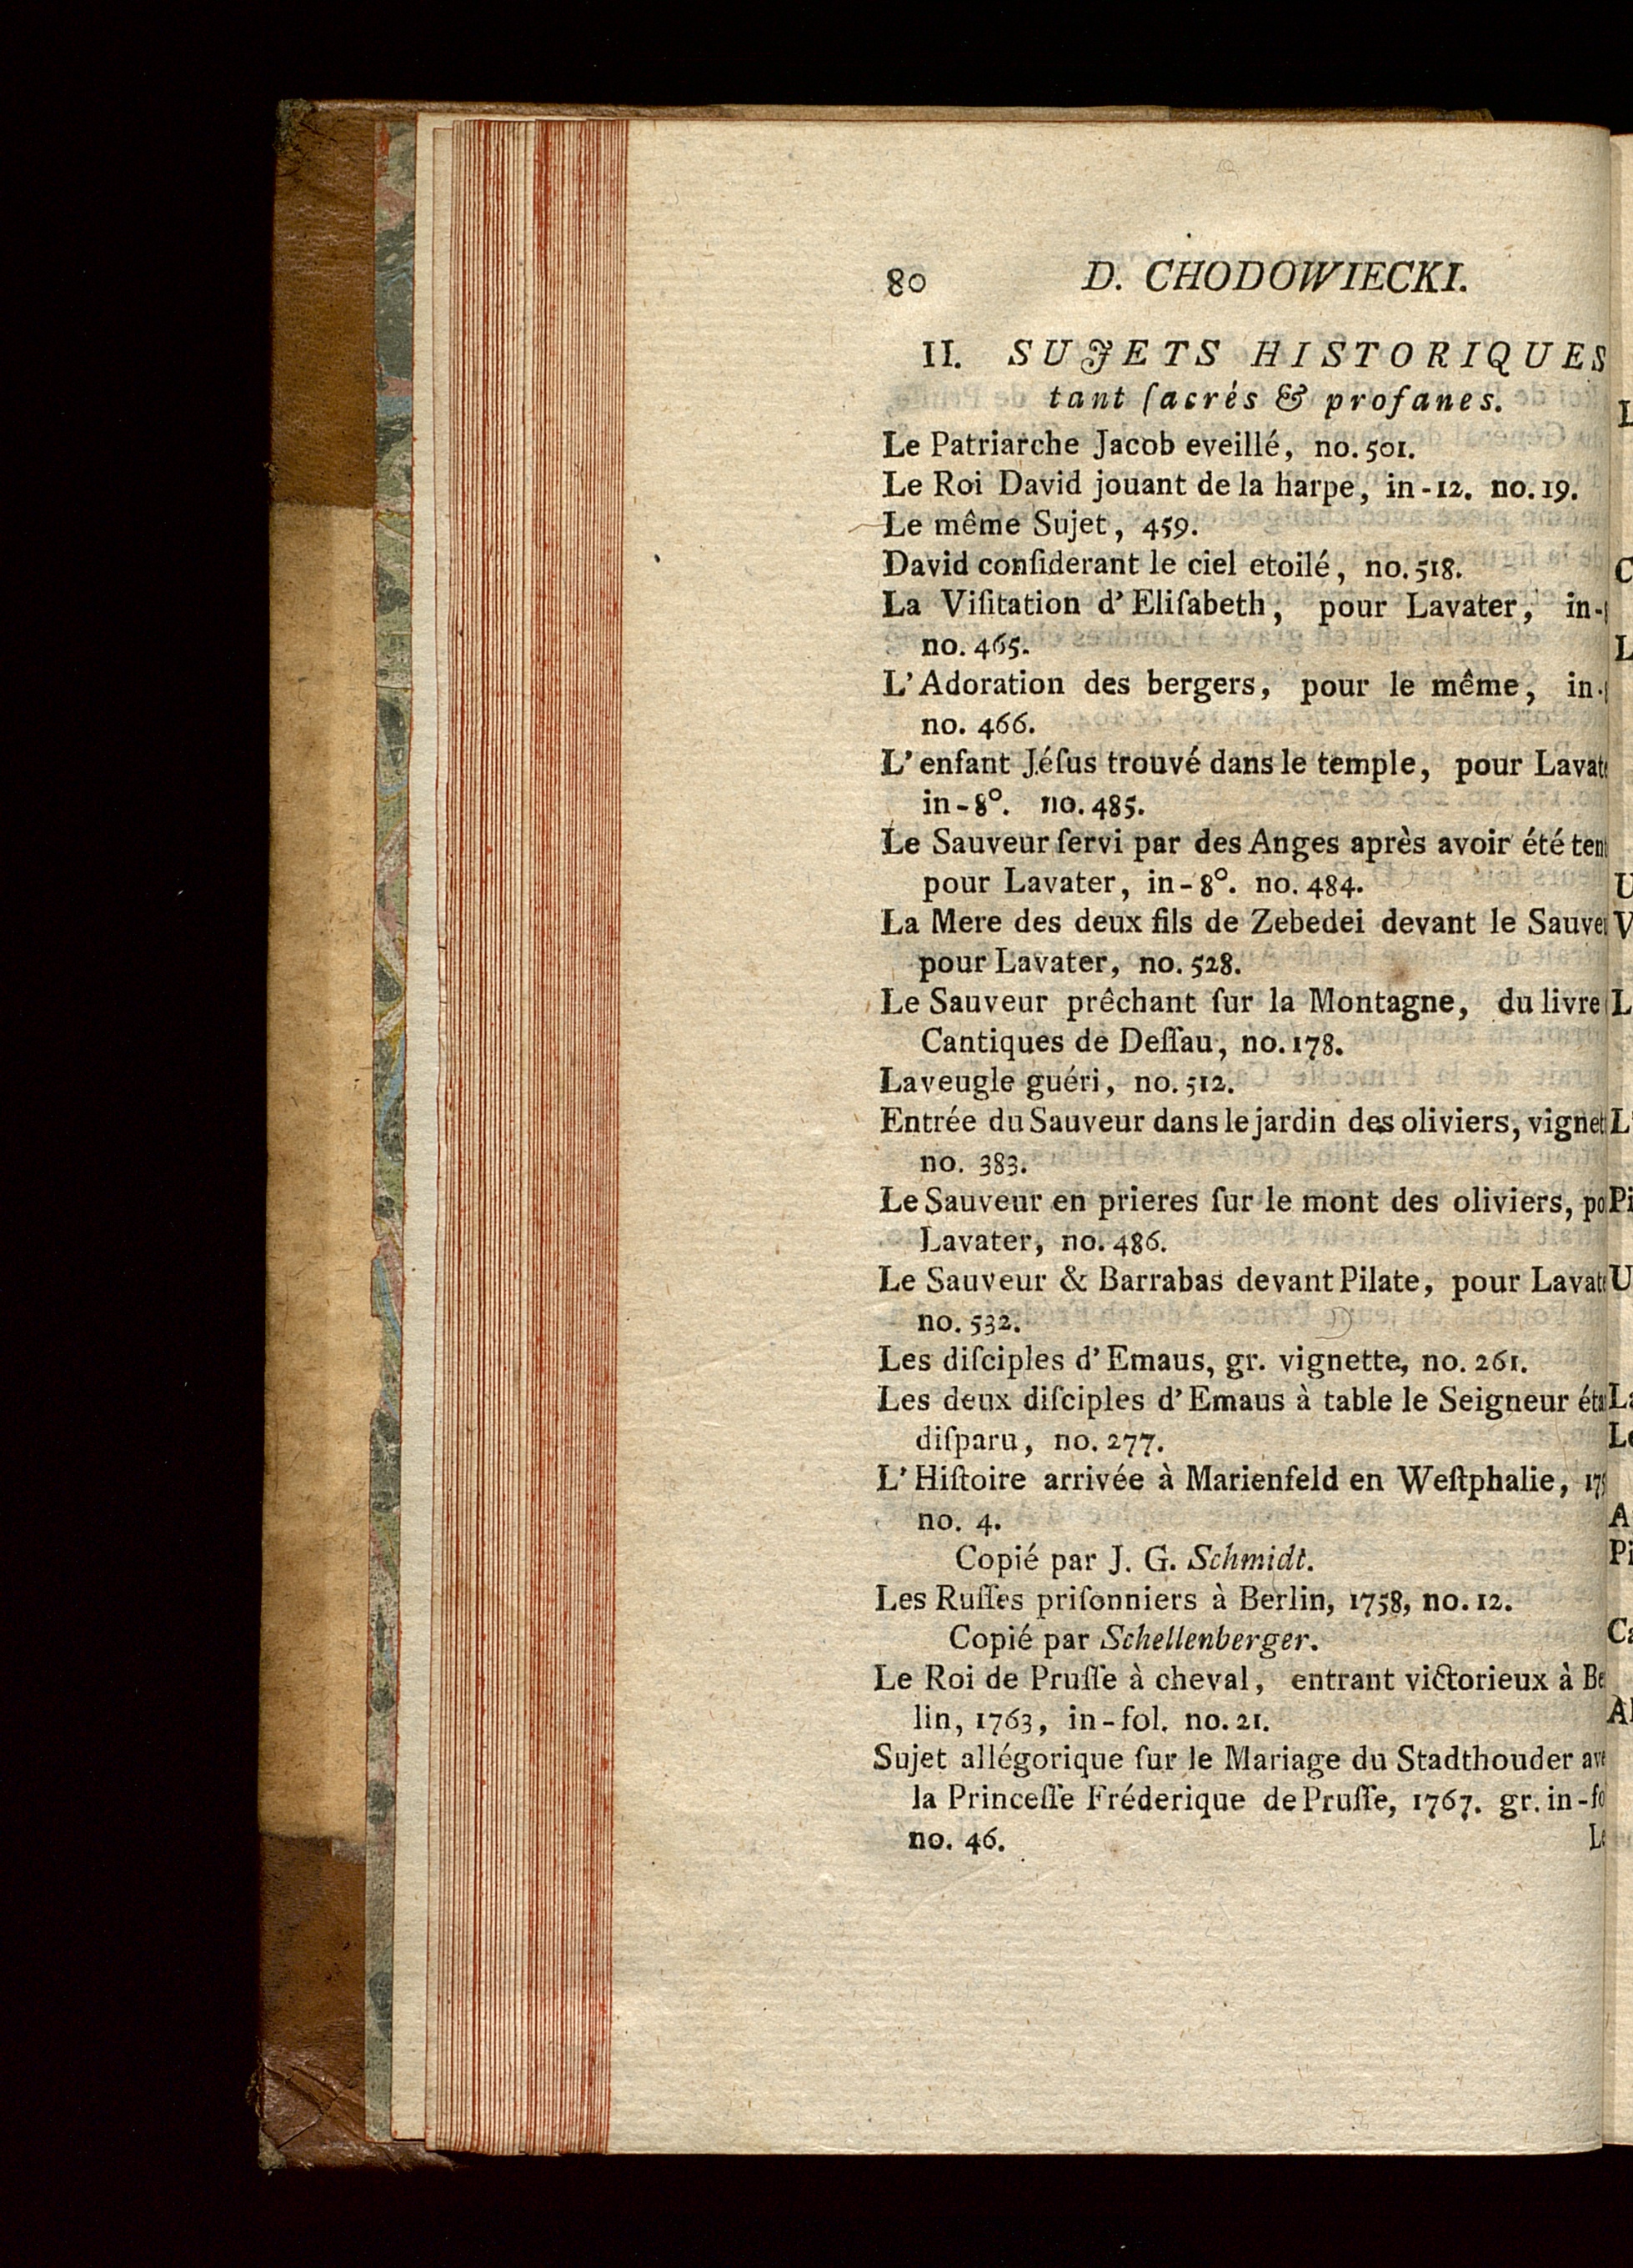 80 D. CHODOWIECKI.
II. SUJETS HISTORIQUES
tant ſacrés & profanes.
Le Patriarche Jacob eveillé, no. 501.
Le Roi David jouant de la harpe, in-12. no. 19.
Le même Sujet, 459.
David conſiderant le ciel etoilé, no. 518.
La Viſitation d'Eliſabeth, pour Lavater, in-
no. 465.
L'Adoration des bergers, pour le même, in-
no. 466.
L'enfant Jéſus trouvé dans le temple, pour Lavat
in-8°. no. 485.
Le Sauveur ſervi par des Anges après avoir été ten
pour Lavater, in-8°. no. 484.
La Mere des deux fils de Zebedei devant le Sauve
pour Lavater, no. 528.
Le Sauveur prêchant ſur la Montagne, du livre
Cantiques de Deſſau, no. 178.
Laveugle guéri, no. 512.
Entrée du Sauveur dans le jardin des oliviers, vignet
no. 383.
Le Sauveur en prieres ſur le mont des oliviers, po
Lavater, no. 486.
Le Sauveur & Barrabas devant Pilate, pour Lavat
no. 532.
Les diſciples d'Emaus, gr. vignette, no. 261.
Les deux diſciples d'Emaus à table le Seigneur éta
diſparu, no. 277.
L'Hiſtoire arrivée à Marienfeld en Weſtphalie, 175
no. 4.
Copié par J. G. Schmidt.
Les Ruſſes priſonniers à Berlin, 1758, no. 12.
Copié par Schellenberger.
Le Roi de Pruſſe à cheval, entrant victorieux à Be
lin, 1763, in-fol. no. 21.
Sujet allégorique ſur le Mariage du Stadthouder ave
la Princeſſe Fréderique de Pruſſe, 1767. gr. in-fo
no. 46.
Le